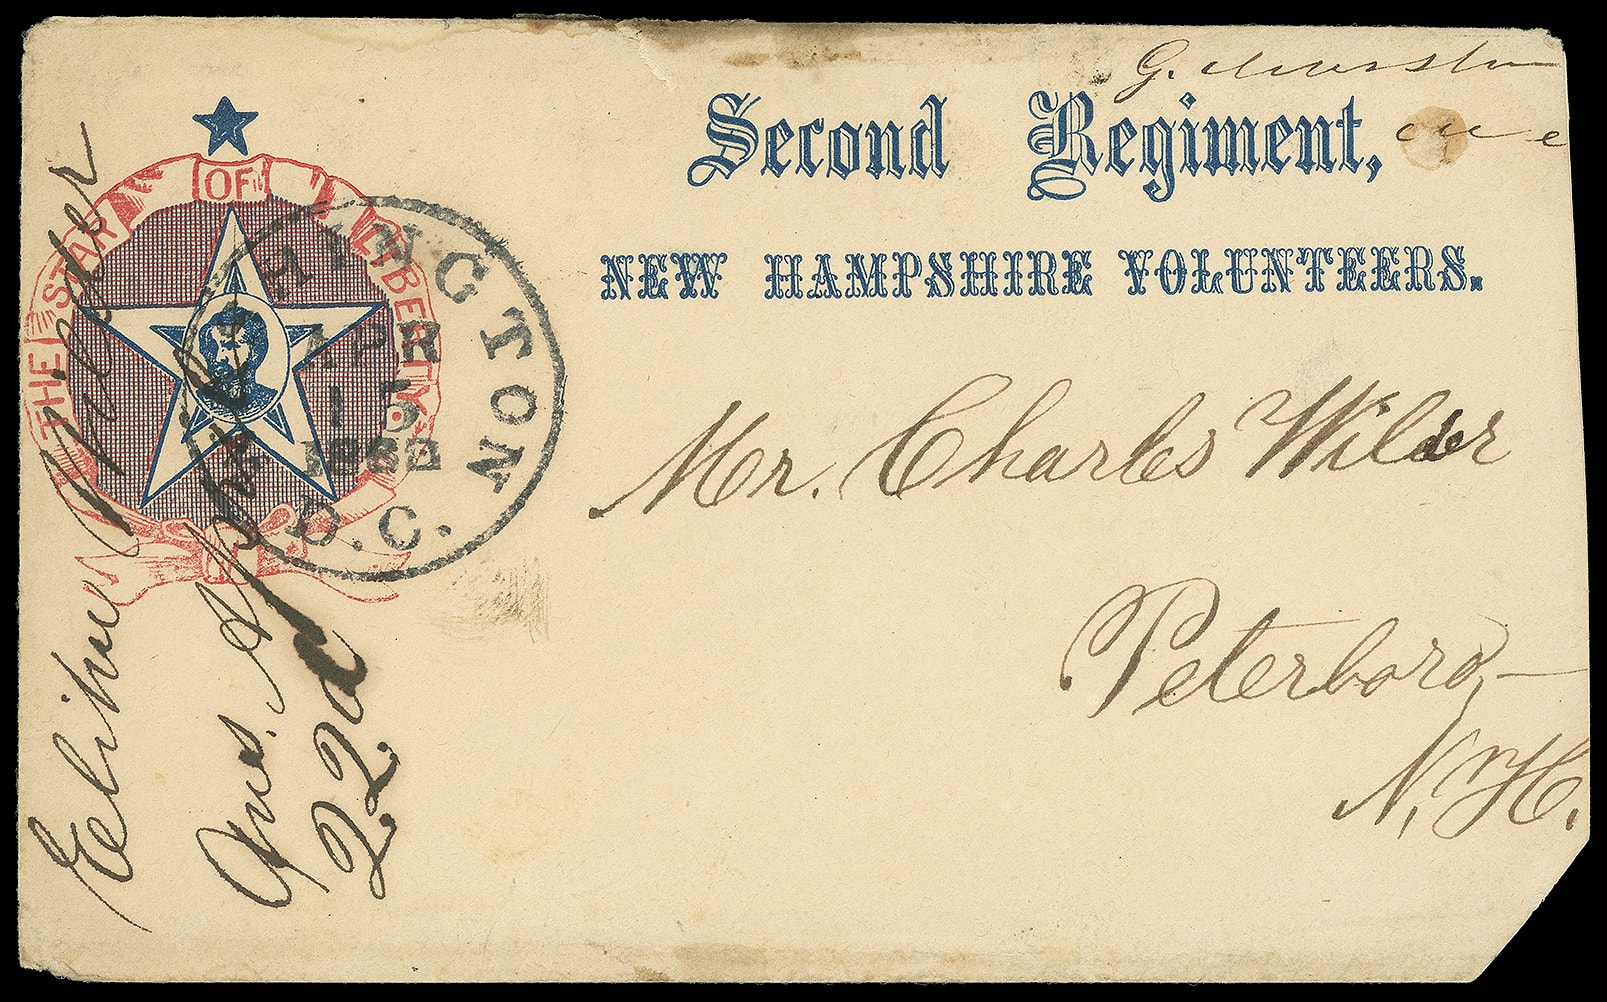 G. Marston
Second Regiment,
NEW HAMPSHIRE VOLUNTEERS.
THE STAR OF LIBERTY
WASHINGTON
APR
15
1862
D.C.
Mr. Charles Wilder
Peterboro,
N, H.
Elihu Wilder
Ans. April
22d